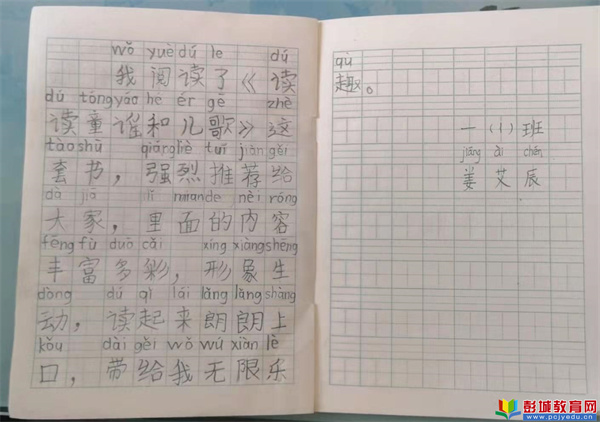 wǒ yuè dú le dú
我阅读了《读
dú tóng yáo he ér gē zhè
读童谣和儿歌》这
tào shū qiáng liè tuī jiàn gěi
套书，强烈推荐给
dà jiā lǐ miàn de nèi róng
大家，里面的内容
fēng fù duō cǎi xíng xiàng shēng
丰富多彩，形象生
dòng dú qǐ lái lǎng lǎng shàng
动，读起来朗朗上
kǒu dài gěi wǒ wú xiàn lè
口，带给我无限乐
qù
趣。
一（1）班
jiāng ài chén
姜艾辰
彭城教育网
www.pcjyedu.com